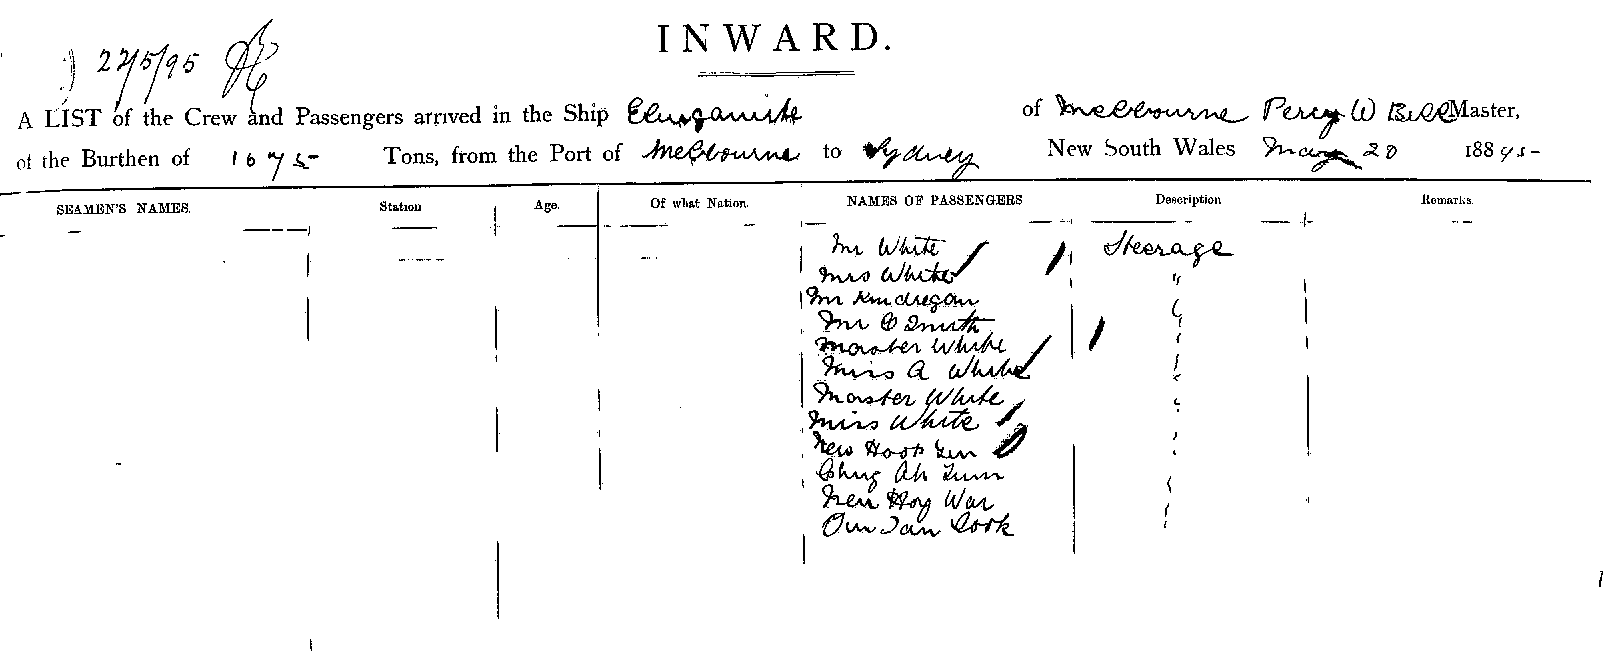 INWARD.
22/5/95
A LIST of the Crew and Passengers arrived in the Ship Elingamite of Melbourne Percy W Bull Master,
of the Burthen of 1675 Tons, from the Port of Melbourne to Sydney New South Wales May 20 188 95
SEAMEN'S NAMES. Station Age. Of what Nation. NAMES OF PASSENGERS Description Remarks.
Mr White Steerage
Mrs White "
Mr Kindregan
Mr C Smith
Master White
Miss A White
Master White
Miss White
Hoop
Ah
Hoy War